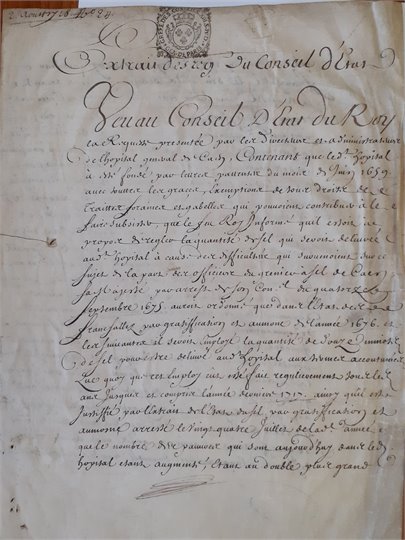 2 Aoust 1718
Extrait des reg. Du Conseil d'Estat
Veu au Conseil D'Estat du Roy
la Requeste presentée par les Directeurs et administrateurs
de l'hopital general de Caen, Contenant que led. hopital
a esté fondé par lettres patentes du mois de Juin 1659
avec toutes les graces, Exemptions de tous droits de
Traittes foraines et gabelles qui pouvoient contribuer a le
faire subsister, que le feu Roy Informé qu'il estoit a
propos de regler la quantité de sel qui devoit delivrée
aud. hopital a cause des difficultez qui survenoient sur ce
sujet de la part des officiers du grenier a sel de Caen
sa Majesté par arrest de son Con.el du quatorze
Septembre 1675 auroit ordonné que dans l'Estat des
francsallez par gratiffication et aumone de l'année 1676 et
les suivantes il seroit employé la quantité de
de sel pour estre delivré aud. hopital aux termes accoutumez
Que quoy que cet employ eut esté fait regulierement tous les
ans Jusques et compris l'année derniere 1717. ainsy qu'il est
Justiffié par l'extrait de l'Estat du sel par gratiffication et
aumone arresté le vingt quatre Juillet de lad. année
que le nombre des pauvres qui sont aujourd'huy dans led.
hopital estant augmenté, Estant au double plus grand